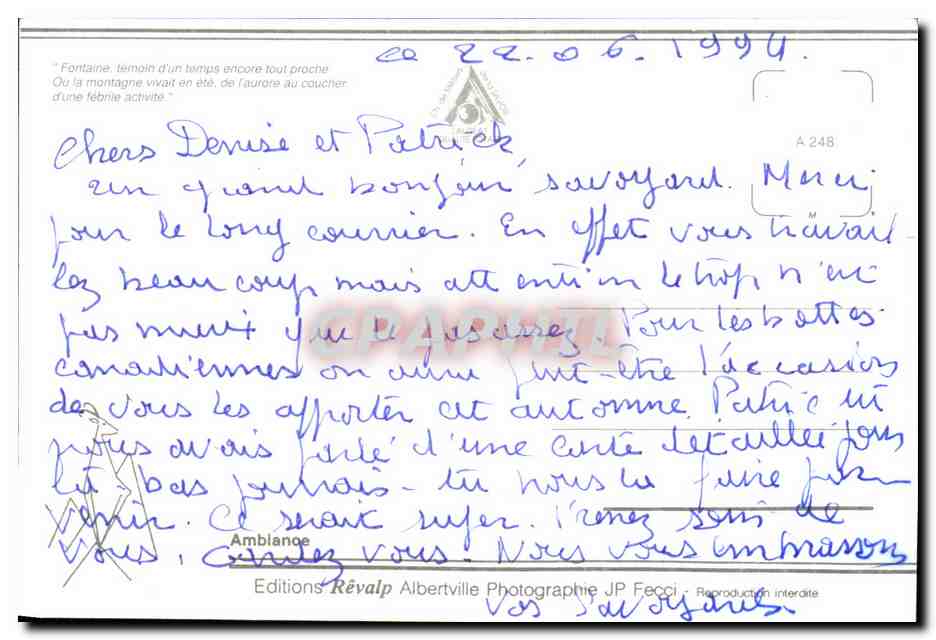 ce 22.06.1994.
" Fontaine, témoin d'un temps encore tout proche
Ou la montagne vivait en été, de l'aurore au coucher
d'une fébrile activité."
A 248
Chers Denise et Patrick,
un grand bonjour savoyard. Merci
M
pour le long courrier. En effet vous travail-
lez beaucoup mais attention le trop n'est
pas mieux que le pas assez. Pour les bottes
CPAPHIL
canadiennes on aura peut-être l'occasion
de vous les apporter cet automne. Patric tu
nous avais parlé d'une carte détaillée pour
là-bas pourrais-tu nous la faire par
venir. Ce serait super. Prenez soin de
vous, vous. Nous vous embrassons
Ambiance
Editions Rêvalp Albertville Photographie JP Fecci - Reproduction interdite
Vos Savoyards.